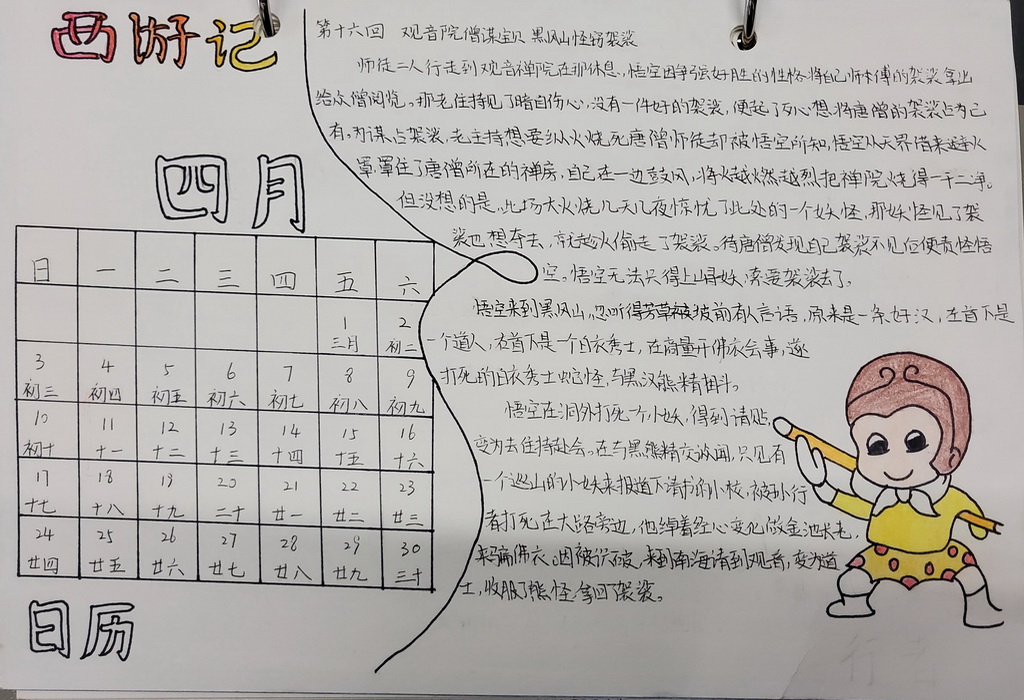 西游记
四月
日 一 二 三 四 五 六
1 2
三月 初二
3 4 5 6 7 8 9
初三 初四 初五 初六 初七 初八 初九
10 11 12 13 14 15 16
初十 十一 十二 十三 十四 十五 十六
17 18 19 20 21 22 23
十七 十八 十九 二十 廿一 廿二 廿三
24 25 26 27 28 29 30
廿四 廿五 廿六 廿七 廿八 廿九 三十
日历
第十六回 观音院僧谋宝贝 黑风山怪窃袈裟
师徒二人行走到观音禅院在那休息,悟空因争强好胜的性格将自己师傅的袈裟拿出
给众僧阅览。那老住持见了暗自伤心,没有一件好的袈裟,便起了歹心想将唐僧的袈裟占为己
有。为谋占袈裟,老主持想要纵火烧死唐僧师徒却被悟空所知,悟空从天界借来避火
罩罩住了唐僧所在的禅房,自己在一边鼓风,将火越燃越烈把禅院烧得一干二净。
但没想的是,此场大火烧几天几夜惊忧了此处的一个妖怪,那妖怪见了袈
裟也想夺去,就趁火偷走了袈裟。待唐僧发现自己袈裟不见后便责怪悟
空。悟空无法只得上山寻妖,索要袈裟去了。
悟空来到黑风山,忽听得芳草坡前有人言语,原来是一条好汉,在首下是
一个道人,右首下是一个白衣秀士,在商量开佛衣会事,遂
打死的白衣秀士蛇怪,与黑汉熊精相斗。
悟空在洞外打死一个小妖,得到请贴,
变为去住持赴会。在与黑熊精交谈间,只见有
一个巡山的小妖来报道下请书的小校,被孙行
者打死在大路旁边,他绰着经心变化做金池长老,
来骗佛衣。因被识破,来到南海请到观音,变为道
士,收服了熊怪,拿回了袈裟。